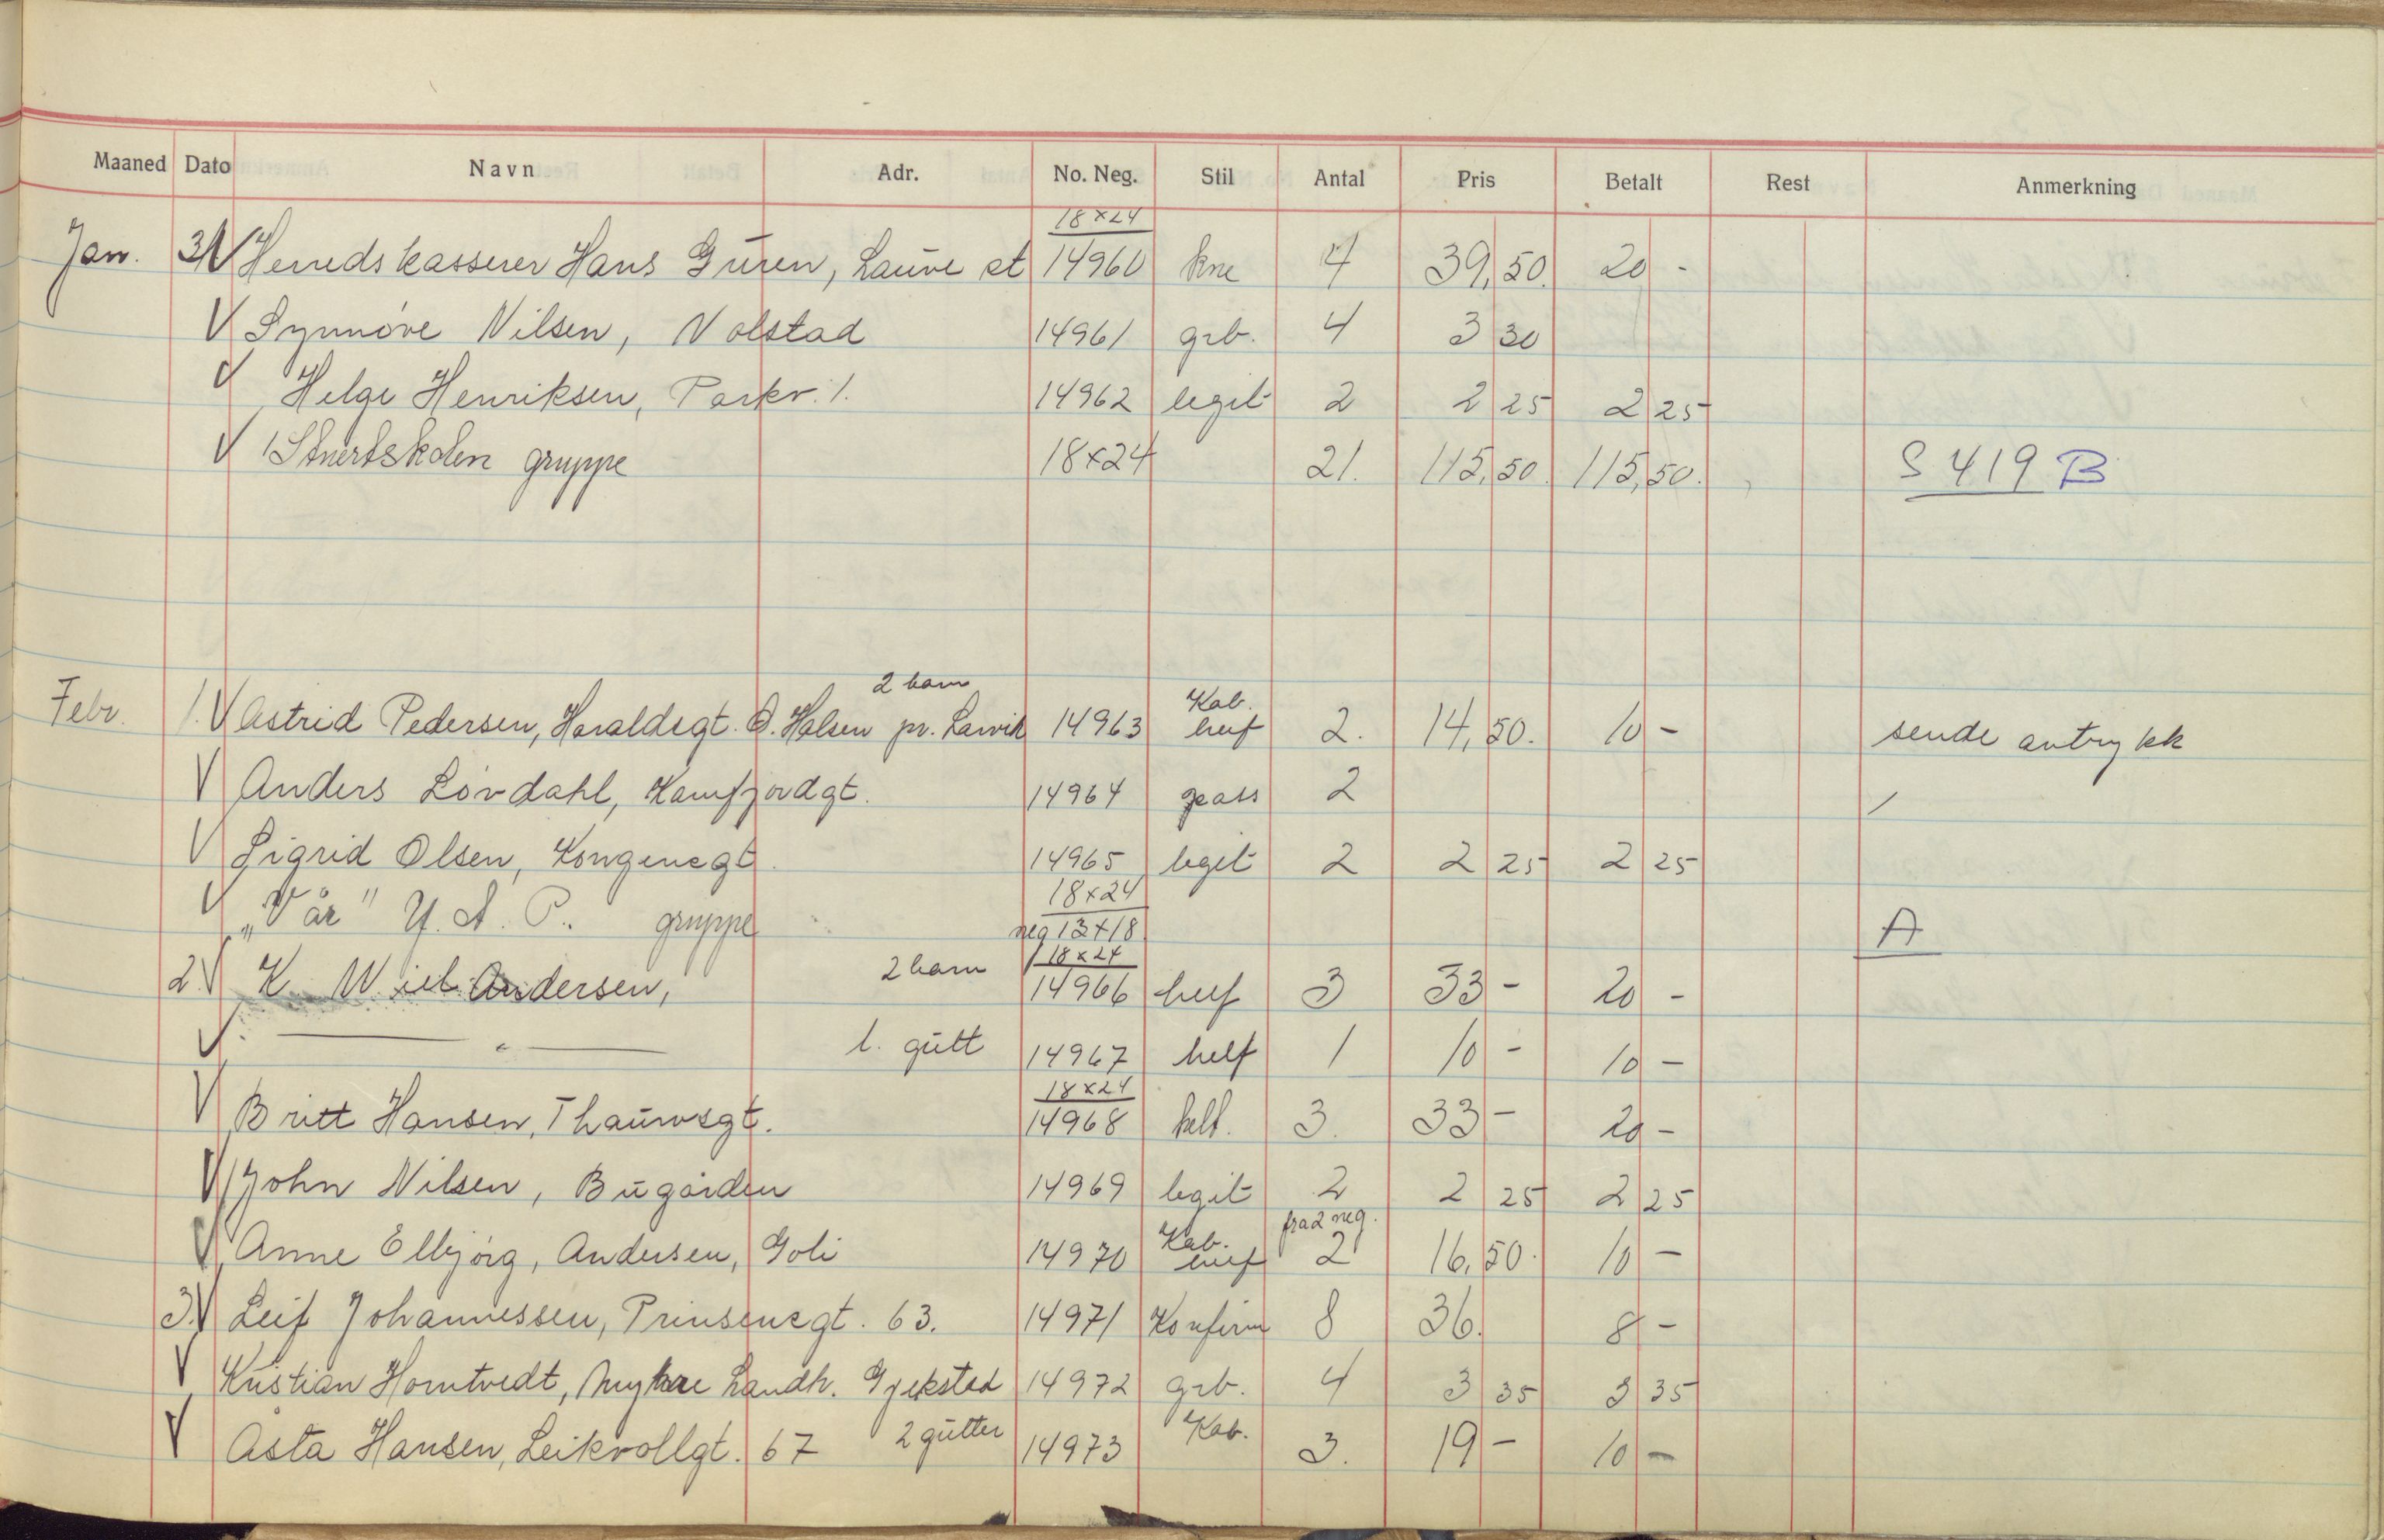 Maaned Dato Navn Adr. No. Neg. Stil Antal Pris Betalt Rest Anmerkning
18x24
Jan. 31 V Herredskasserer Hans Guren, Lauve st 14960 kne 4 39,50. 20 -
V Synnöve Nilsen, Nolstad 14961 grb. 4 3 30
V Helge Henriksen, Parkv. 1. 14962 legit 2 2 25 2 25
V gruppe 18x24 21. 115,50. 115,50. S 419 B
2 barn Kab.
Febr. 1. V Astrid Pedersen, Haraldsgt. Ö. Halsen pr. Larvik 14963 helf 2. 14,50. 10 - sende avtrykk
V Anders Lövdahl, Kamfjordgt. 14964 pass 2
V Sigrid Olsen, Kongensgt. 14965 legit 2 2 25 2 25
18x24
V "Vår" gruppe neg 13x18 A
18x24
2. V K Wiel Andersen, 2 barn 14966 helf 3 33 - 20 -
V — " — 1. gutt 14967 helf 1 10 - 10 -
18x24
V Britt Hansen, Thaurvsgt. 14968 helf. 3. 33 - 20 -
V John Nilsen, Bugården 14969 legit 2 2 25 2 25
Kab. fra 2 neg.
V Anne Elbjörg, Andersen, Goli 14970 helf 2 16,50. 10 -
3. V Leif Johannessen, Prinsensgt. 63. 14971 Konfirm 8 36. 8 -
V Kristian Horntvedt, Landh. Gjekstad 14972 grb. 4 3 35 3 35
V Asta Hansen, Leikvollgt. 67 2 gutter 14973 Kab. 3. 19 - 10 -